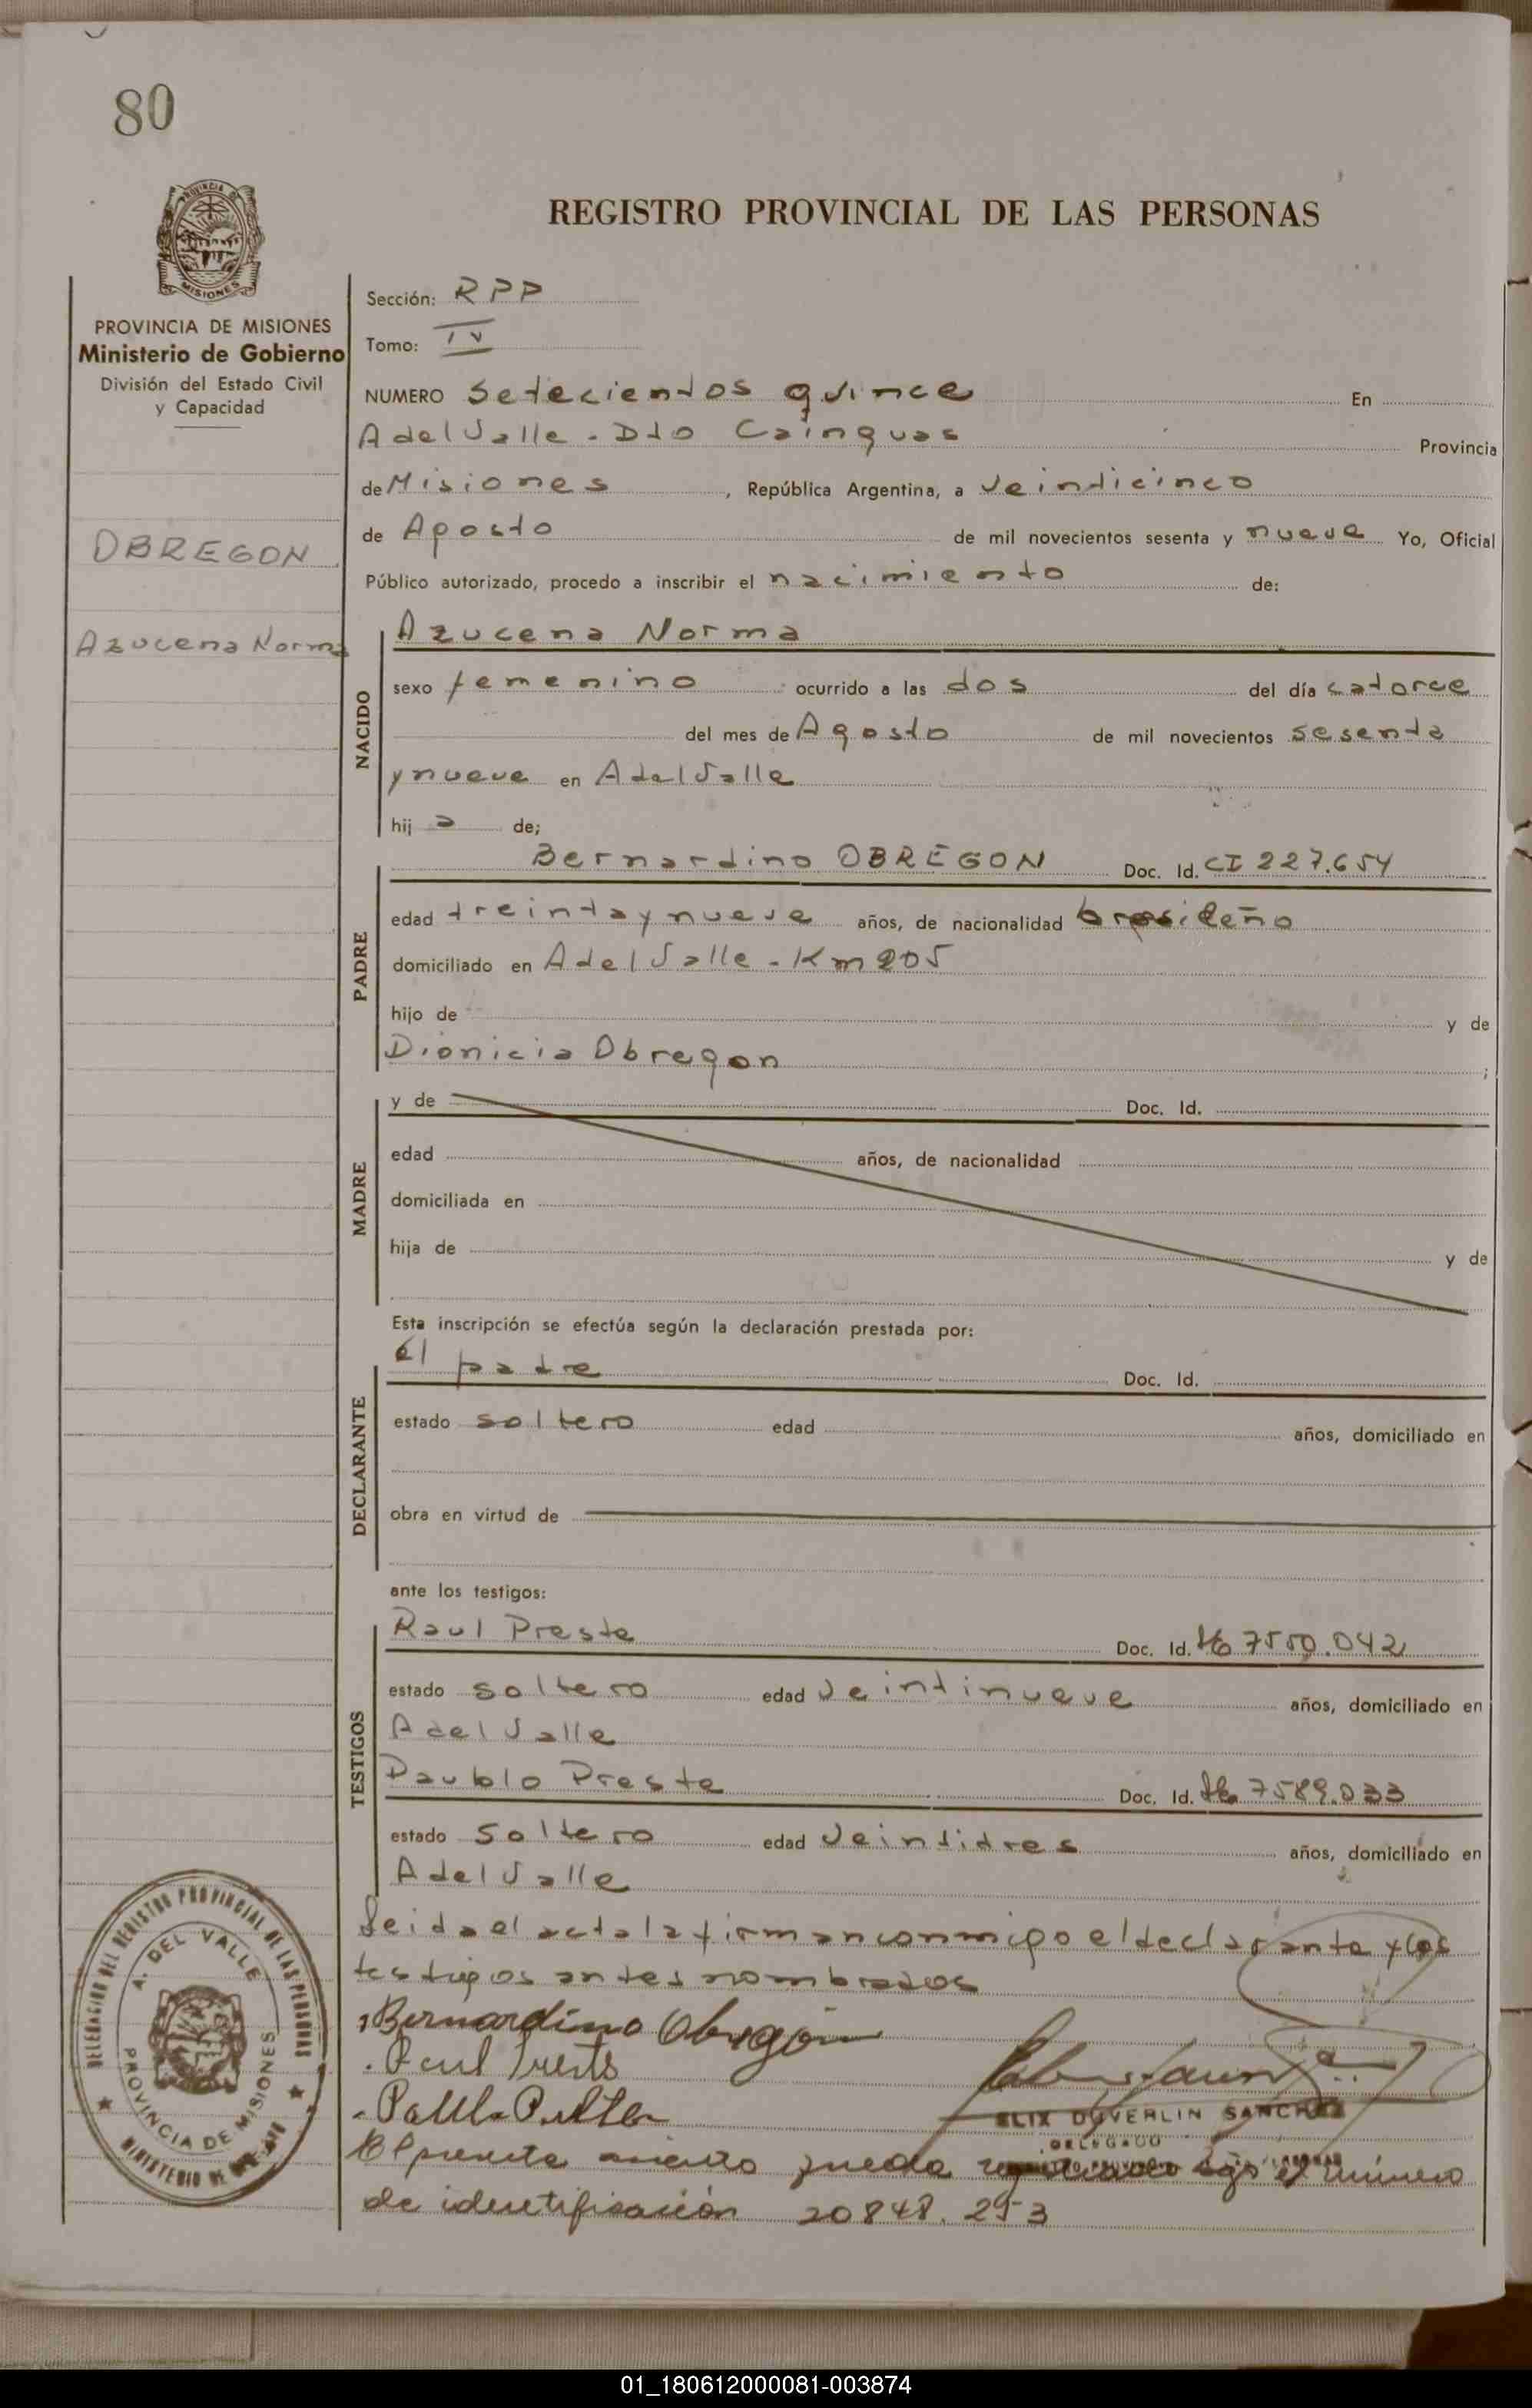 80
REGISTRO PROVINCIAL DE LAS PERSONAS
PROVINCIA DE MISIONES
Ministerio de Gobierno
División del Estado Civil
y Capacidad
OBREGON
Azucena Norma
Sección: RPP
Tomo: IV
NUMERO Setecientos quince En
A del Valle - Dto Cainguas Provincia
de Misiones, República Argentina, a Veinticinco
de Agosto de mil novecientos sesenta y nueve Yo, Oficial
Público autorizado, procedo a inscribir el nacimiento de:
NACIDO
Azucena Norma
sexo femenino ocurrido a las dos del día catorce
del mes de Agosto de mil novecientos sesenta
y nueve en A del Valle
hij a de;
PADRE
Bernardino OBREGON Doc. Id. CI 227.654
edad treinta y nueve años, de nacionalidad brasileño
domiciliado en A del Valle - Km 205
hijo de y de
Dionicia Obregon ;
MADRE
y de Doc. Id.
edad años, de nacionalidad
domiciliada en
hija de y de
Esta inscripción se efectúa según la declaración prestada por:
DECLARANTE
el padre Doc. Id.
estado soltero edad años, domiciliado en
obra en virtud de
ante los testigos:
TESTIGOS
Raul Preste Doc. Id. 7550.042
estado soltero edad Veintinueve años, domiciliado en
A del Valle
Paublo Preste Doc. Id. 7589.033
estado soltero edad Veintitres años, domiciliado en
A del Valle
Leida el acta la firman conmigo el declarante y los
testigos antes nombrados
Bernardino Obregon
DELEGACION DEL REGISTRO PROVINCIAL DE LAS PERSONAS
A. DEL VALLE
PROVINCIA DE MISIONES
MINISTERIO DE
DUVERLIN SANCHEZ
DELEGADO
El presente asiento queda bajo el número
de identificación 20848.253
01_180612000081-003874